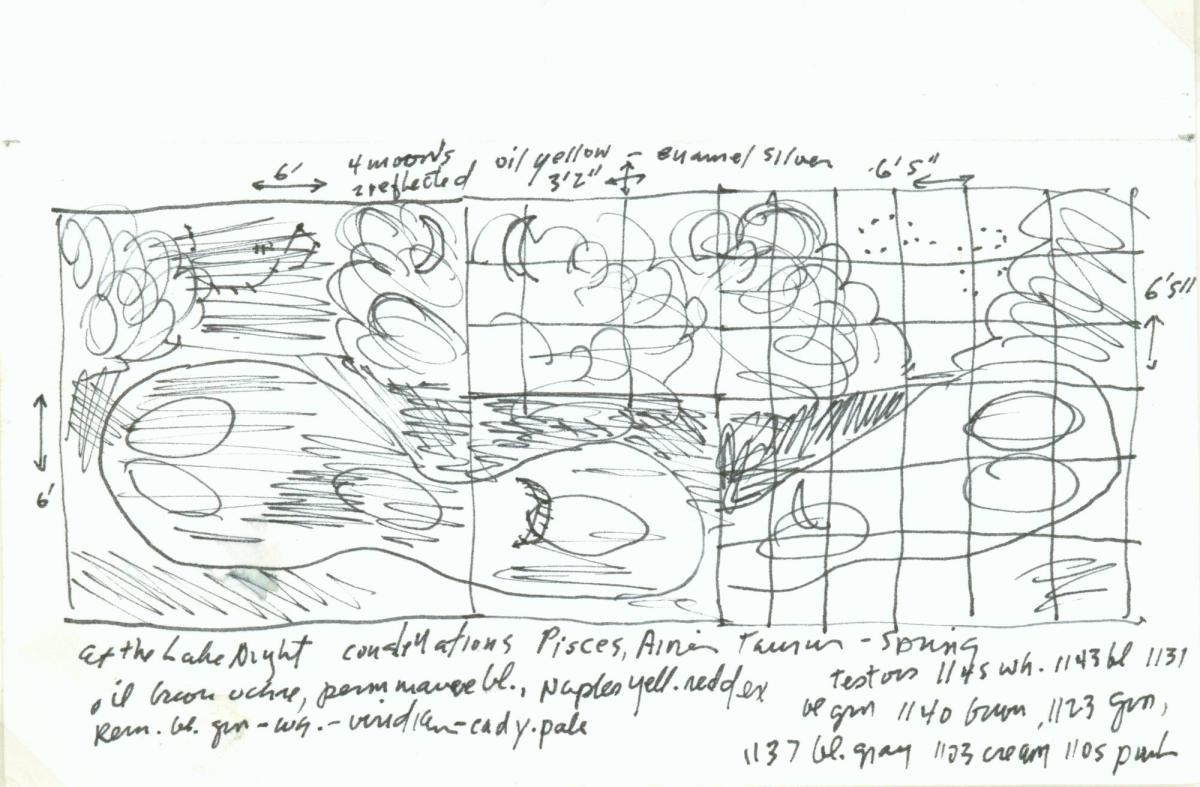 6' 4 moons oil yellow - enamel silver 6'5"
2 reflected 3'2"
6'5"
6'
At the Lake Night constellations Pisces, Taurus - Spring
oil brown ochre, perm mauve bl., Naples yell. redd ex
testors 1145 wh. 1143 bl 1131
Rem. bl. grn - wh. - viridian - cad y. pale
bl grn 1140 brown, 1123 grn,
1137 bl. gray 1103 cream 1105 pink